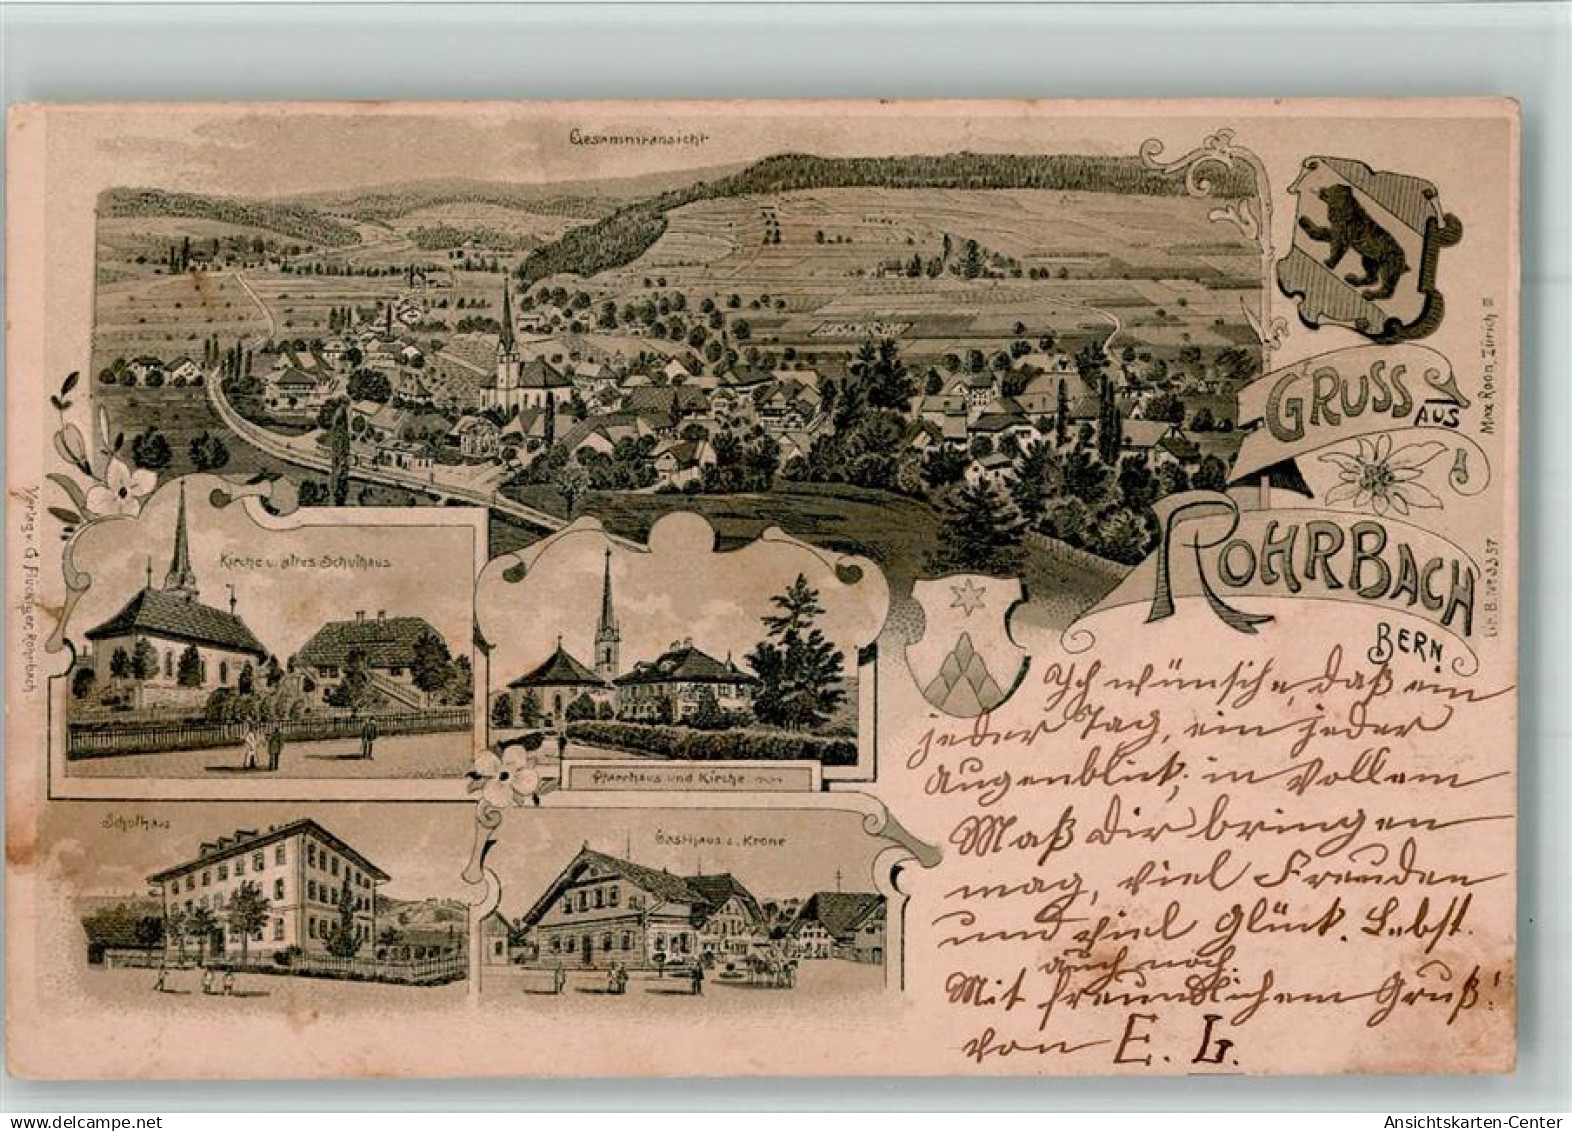 Gesammtansicht
GRUSS
AUS
ROHRBACH
BERN.
Max Roon, Zürich III
Verlag v. G. Flückiger, Rohrbach
Kirche u. altes Schulhaus
Pfarrhaus und Kirche
Schulhaus
Gasthaus z. Krone
Ich wünsche, daß ein
jeder Tag, ein jeder
Augenblick, in vollem
Maß Dir bringen
mag, viel Freuden
und viel Glück. Lebst
auch noch.
Mit freundlichem Gruß!
von E. L.
Ansichtskarten-Center
delcampe.net